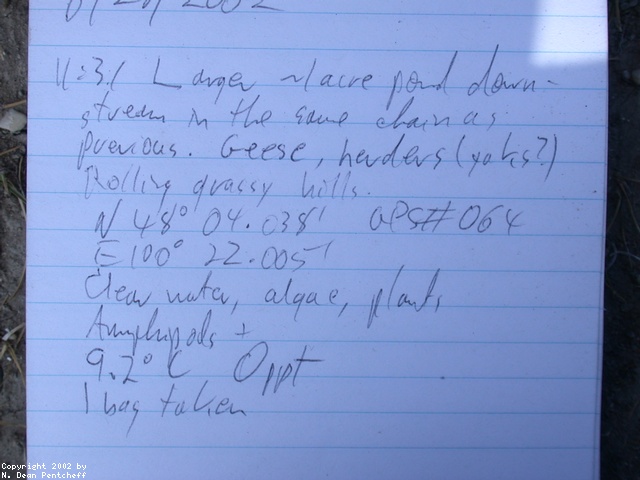 2002
Larger ~1 acre pond down-
stream in the same chain as
previous. Geese, herders (yaks?)
Rolling grassy hills.
N 48° 04.038' GPS# 064
E 100° 22.005'
Clear water, algae, plants,
Amphipods +
9.2° C 0ppt
1 bag taken
Copyright 2002 by
N. Dean Pentcheff